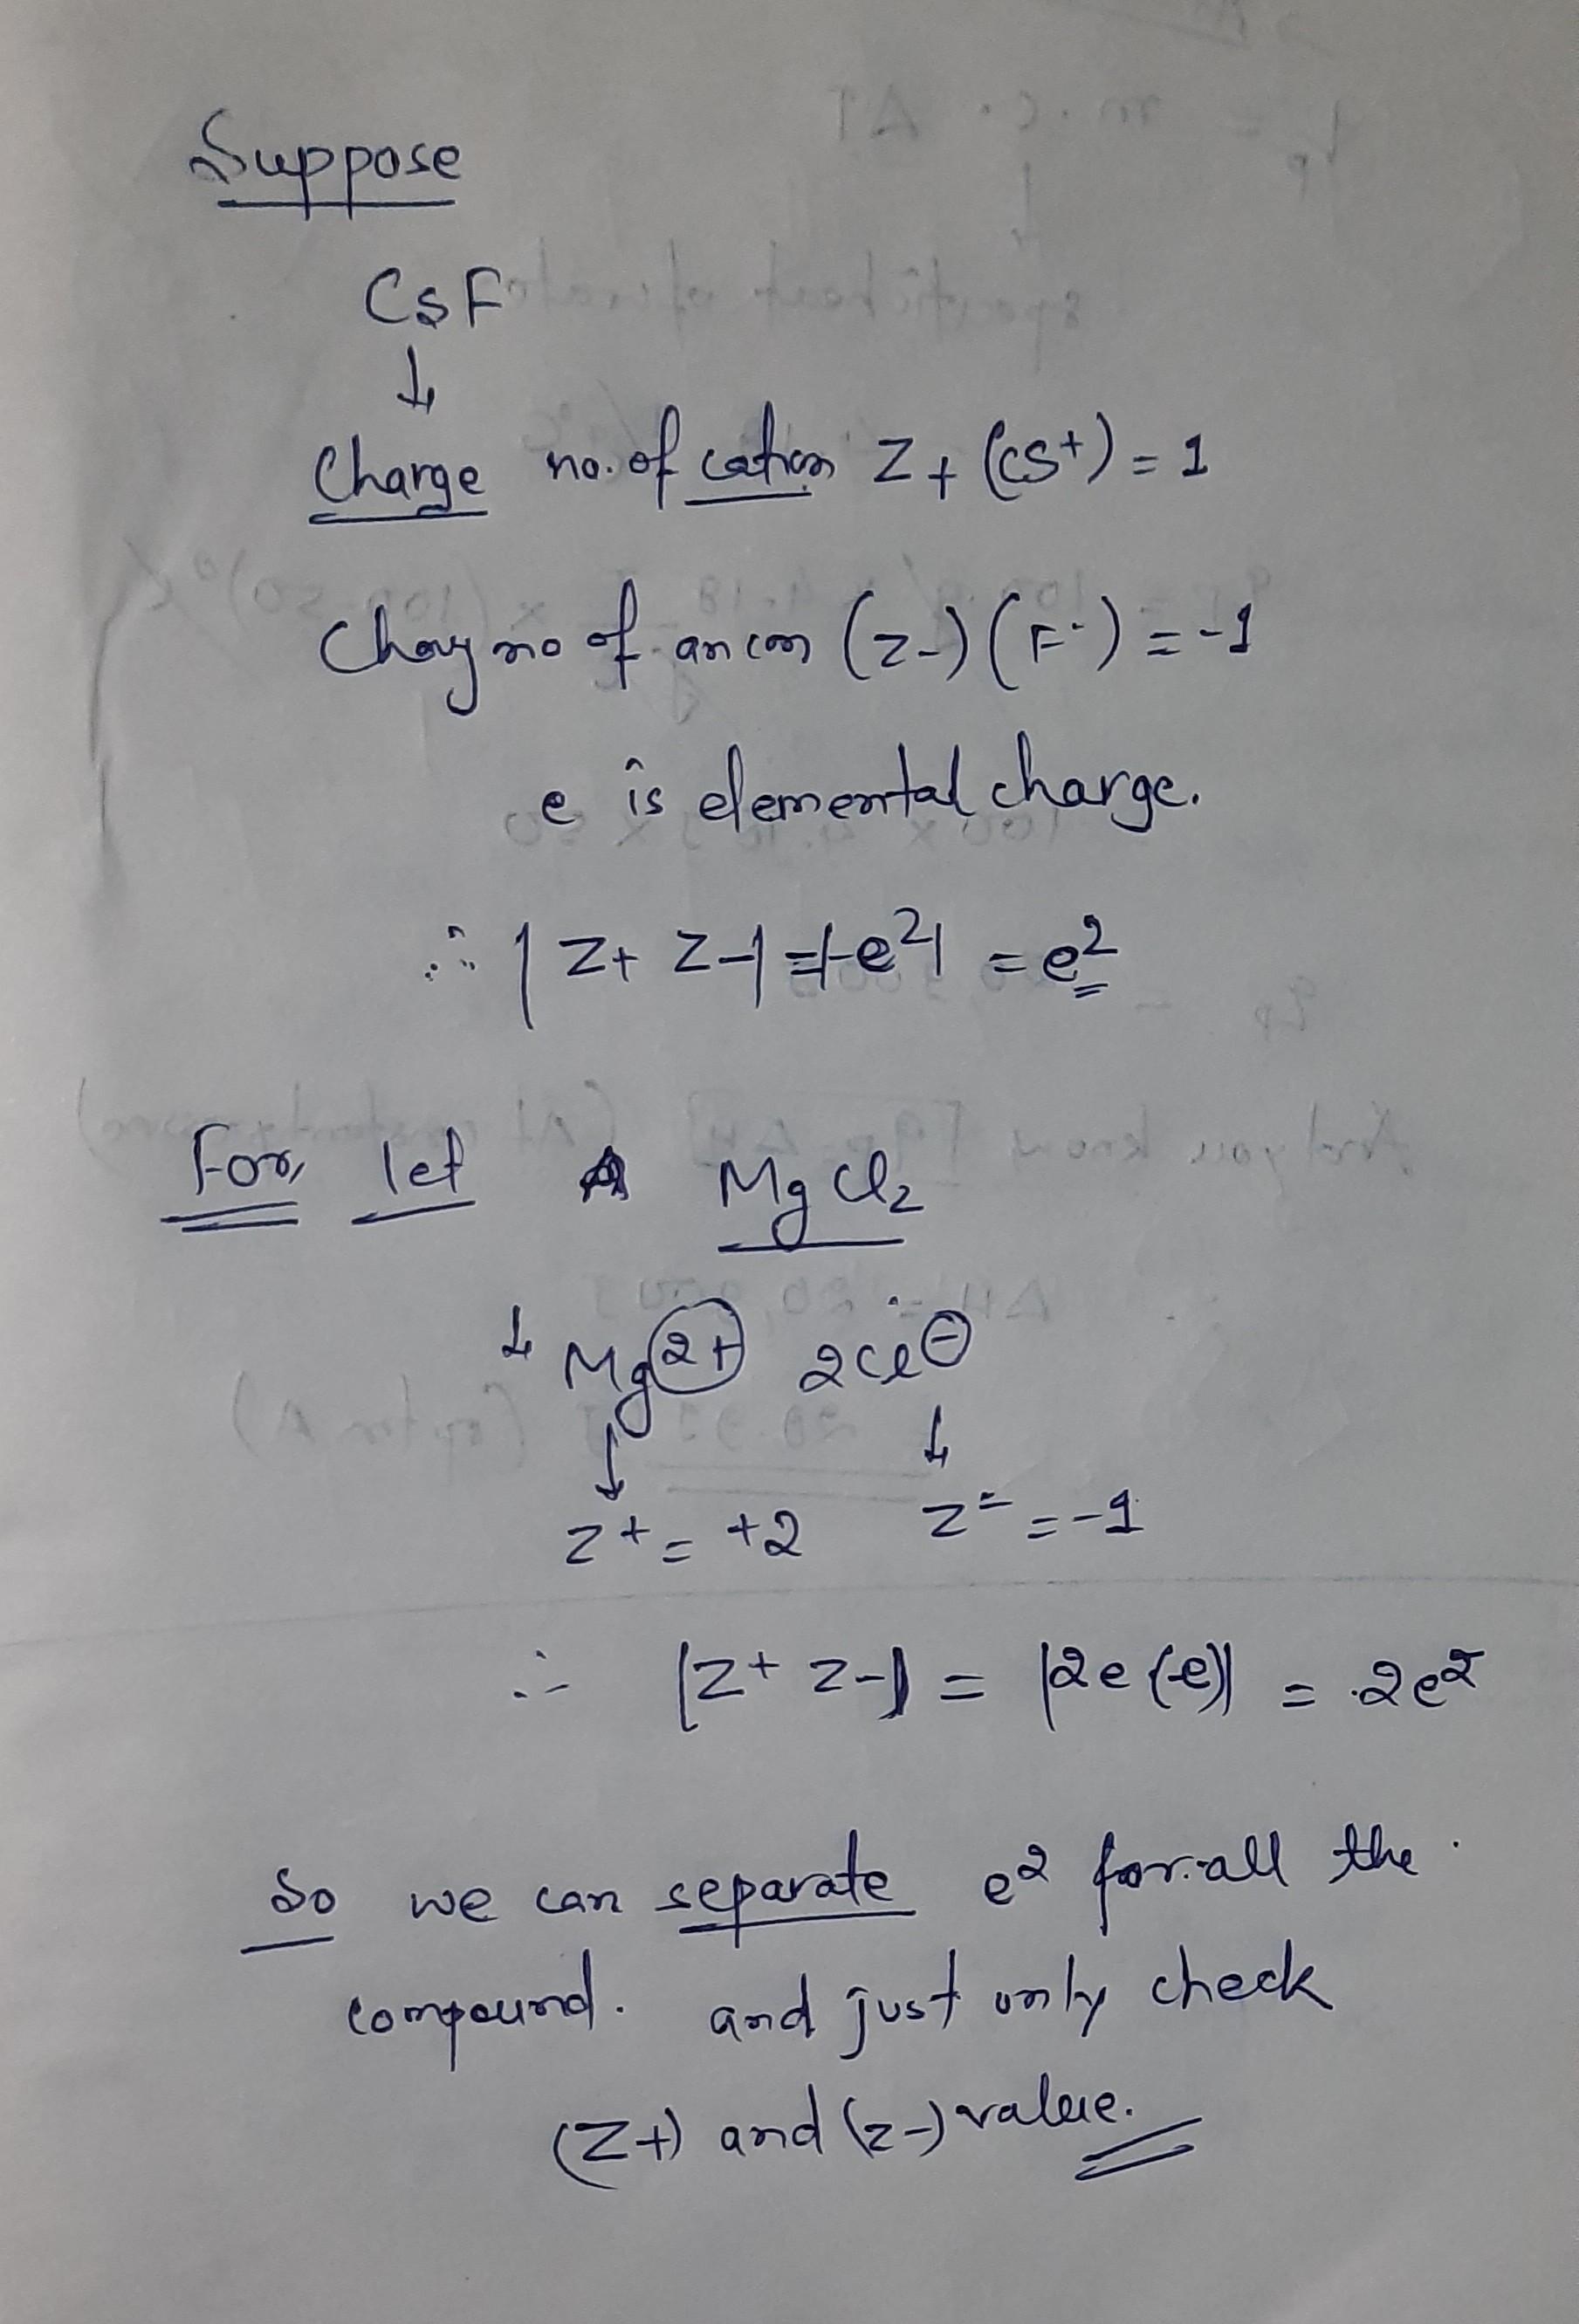 Suppose
CsF
↓
Charge no. of cation Z+ (Cs+) = 1
Charg no of anion (z-) (F-) = -1
e is elemental charge.
∴ |Z+ Z-| = |-e²| = e²
For, let MgCl₂
↓ Mg2+ 2Cl⊖
↓ ↓
Z+ = +2 Z- = -1
∴ |Z+ Z-| = |2e(-e)| = 2e²
So we can separate e² for all the
compound. and just only check
(Z+) and (z-) value.